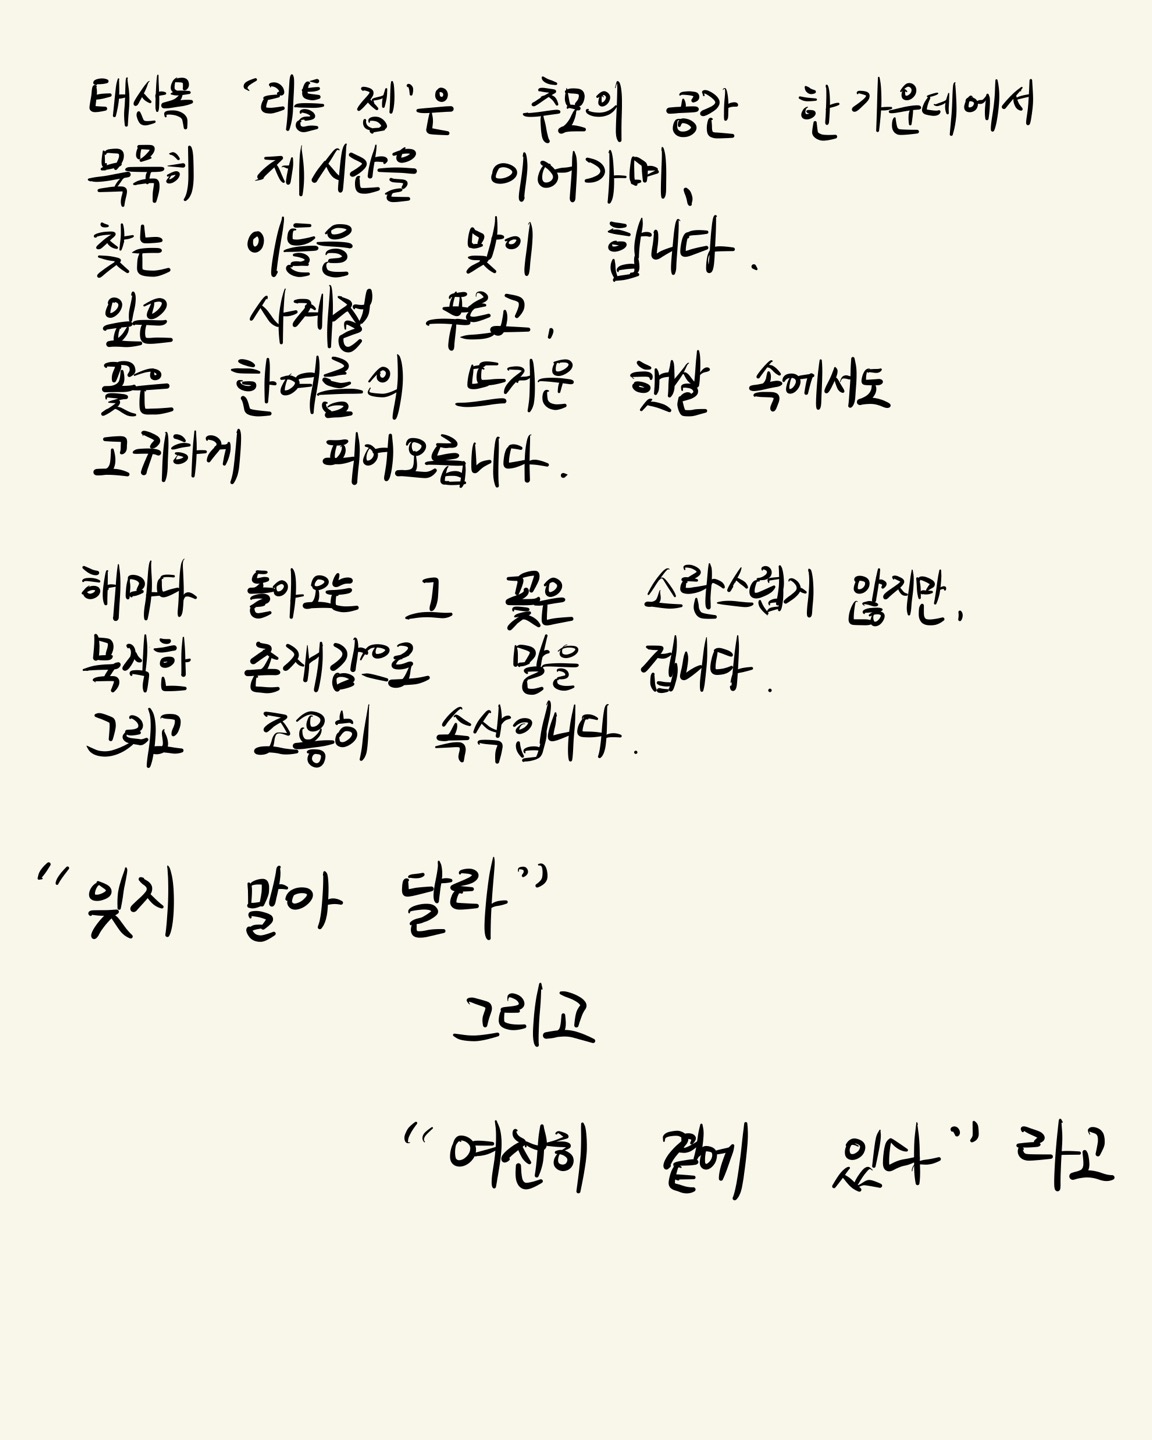 태산목 '리틀 젬'은 추모의 공간 한가운데에서
묵묵히 제시간을 이어가며,
찾는 이들을 맞이 합니다.
잎은 사계절 푸르고,
꽃은 한여름의 뜨거운 햇살 속에서도
고귀하게 피어오릅니다.
해마다 돌아오는 그 꽃은 소란스럽지 않지만,
묵직한 존재감으로 말을 겁니다.
그리고 조용히 속삭입니다.
"잊지 말아 달라"
그리고
"여전히 곁에 있다" 라고